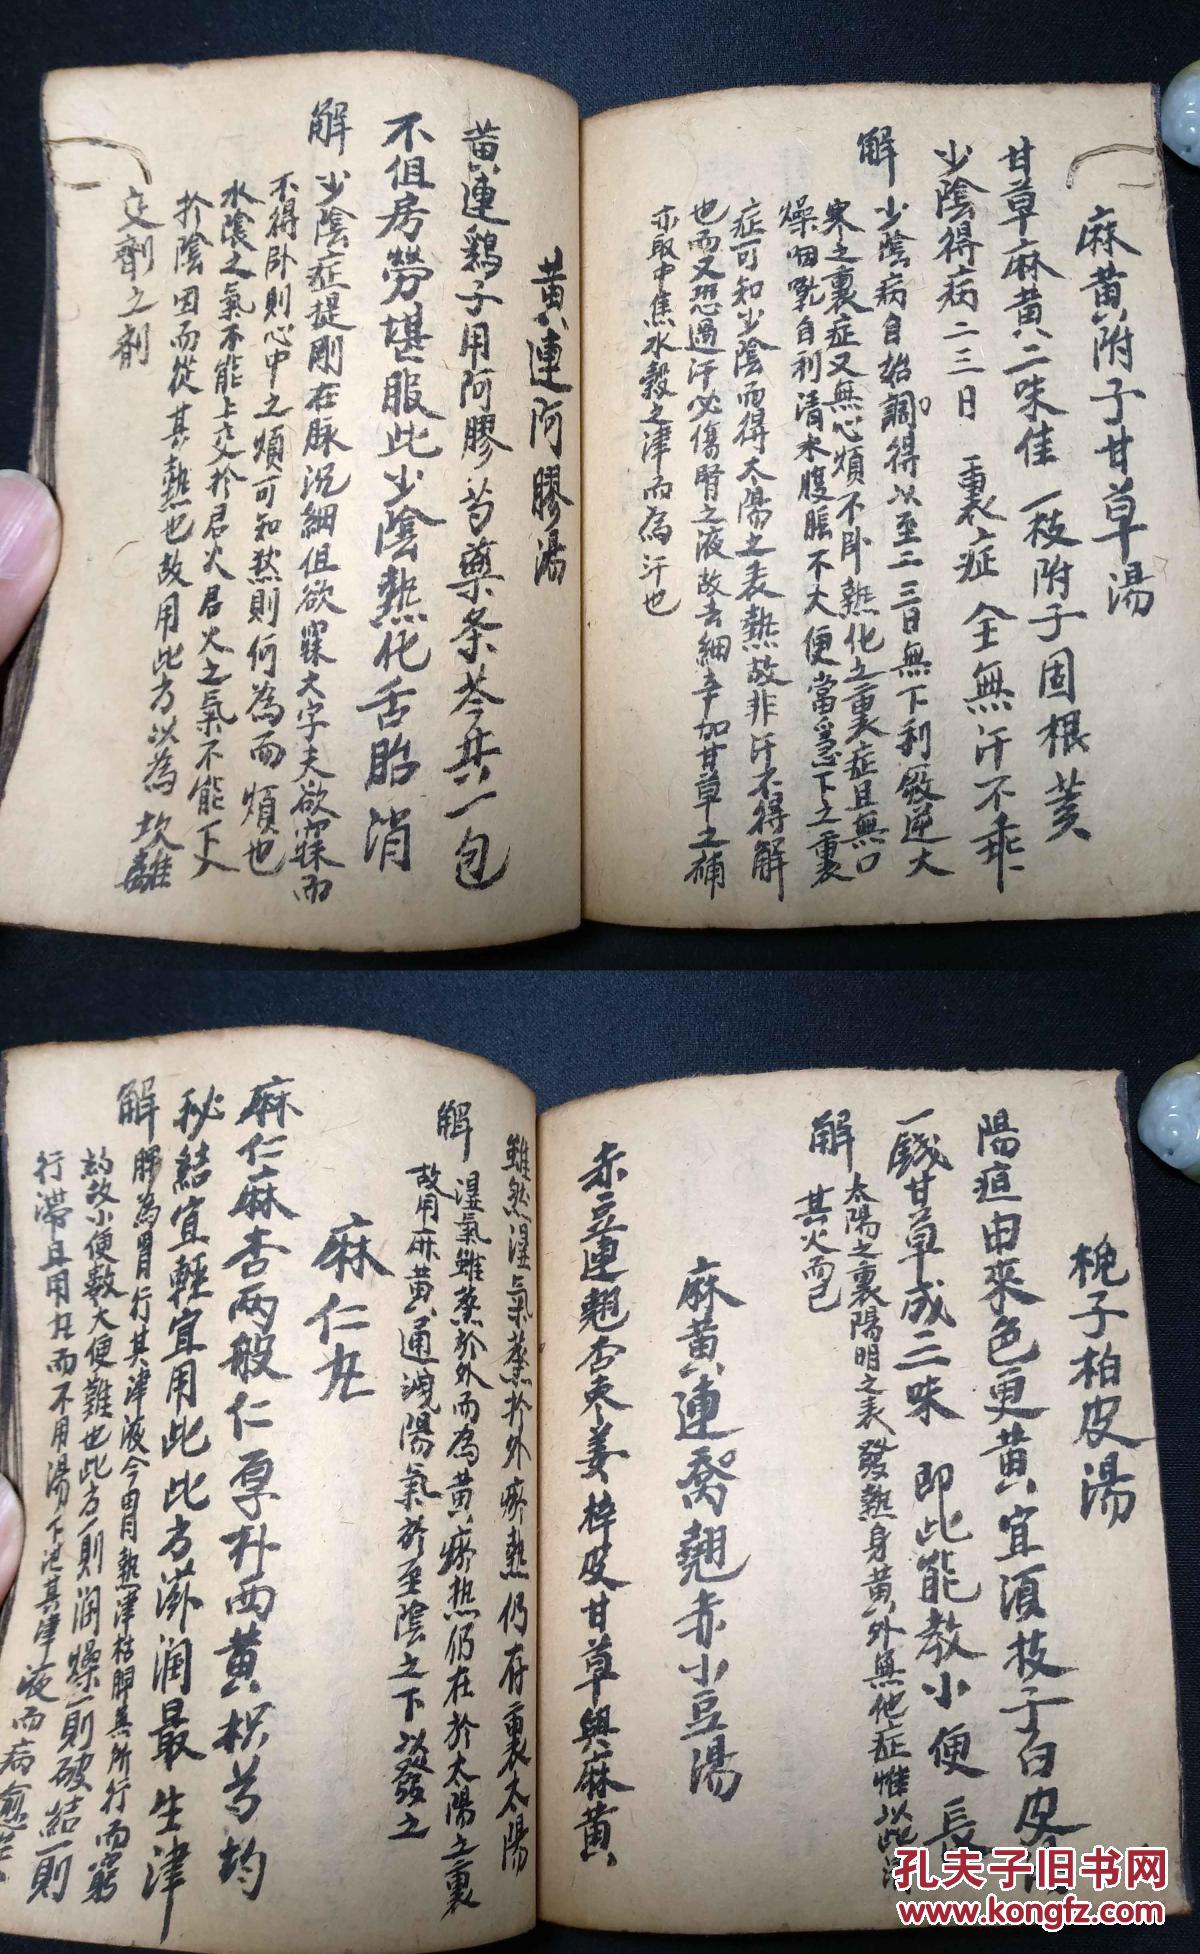 麻黄附子甘草湯
甘草麻黄二味佳 一枝附子固根荄
少陰得病二三日 裏症全無汗不乖
解 少陰病自始調得以至二三日無下利厥逆大
寒之裏症又無心煩不卧熱化之裏症且無口
燥咽乾自利清水腹脹不大便當急下之裏
症可知少陰而得太陽之表熱故非汗不得解
也而又恐過汗必傷腎之液故去細辛加甘草之補
亦取中焦水穀之津而為汗也
黄連阿膠湯
黄連鷄子用阿膠芍藥条芩共一包
不但房勞堪服此少陰熱化舌胎消
解 少陰症提剛在脉沉細但欲寐大字夫欲寐而
不得卧則心中之煩可知然則何為而煩也
水陰之氣不能上交於君火君火之氣不能下入
於陰因而從其熱也故用此方以為坎離
交劑之劑
梔子柏皮湯
陽疸由來色更黄宜須枝子白皮
一錢甘草成三味 即此能教小便長
解 太陽之裏陽明之表發熱身黄外無他症惟以此
其火而已
麻黄連喬翹赤小豆湯
赤豆連翹杏枣姜梓皮甘草與麻黄
雖然濕氣蒸於外瘀熱仍存裏太陽
解 濕氣雖蒸於外而為黄瘀熱仍在於太陽之裏
故用麻黄通洩陽氣於至陰之下以發之
麻仁丸
麻仁麻杏両般仁厚朴西黄枳芍均
秘結宜輕宜用此此方滋潤最生津
解 脾為胃行其津液今胃熱津枯脾無所行而窮
約故小便数大便難也此方一則润燥一則破結一則
行滯且用丸而不用湯下
其津液而病愈
孔夫子旧书网
kongfz.com